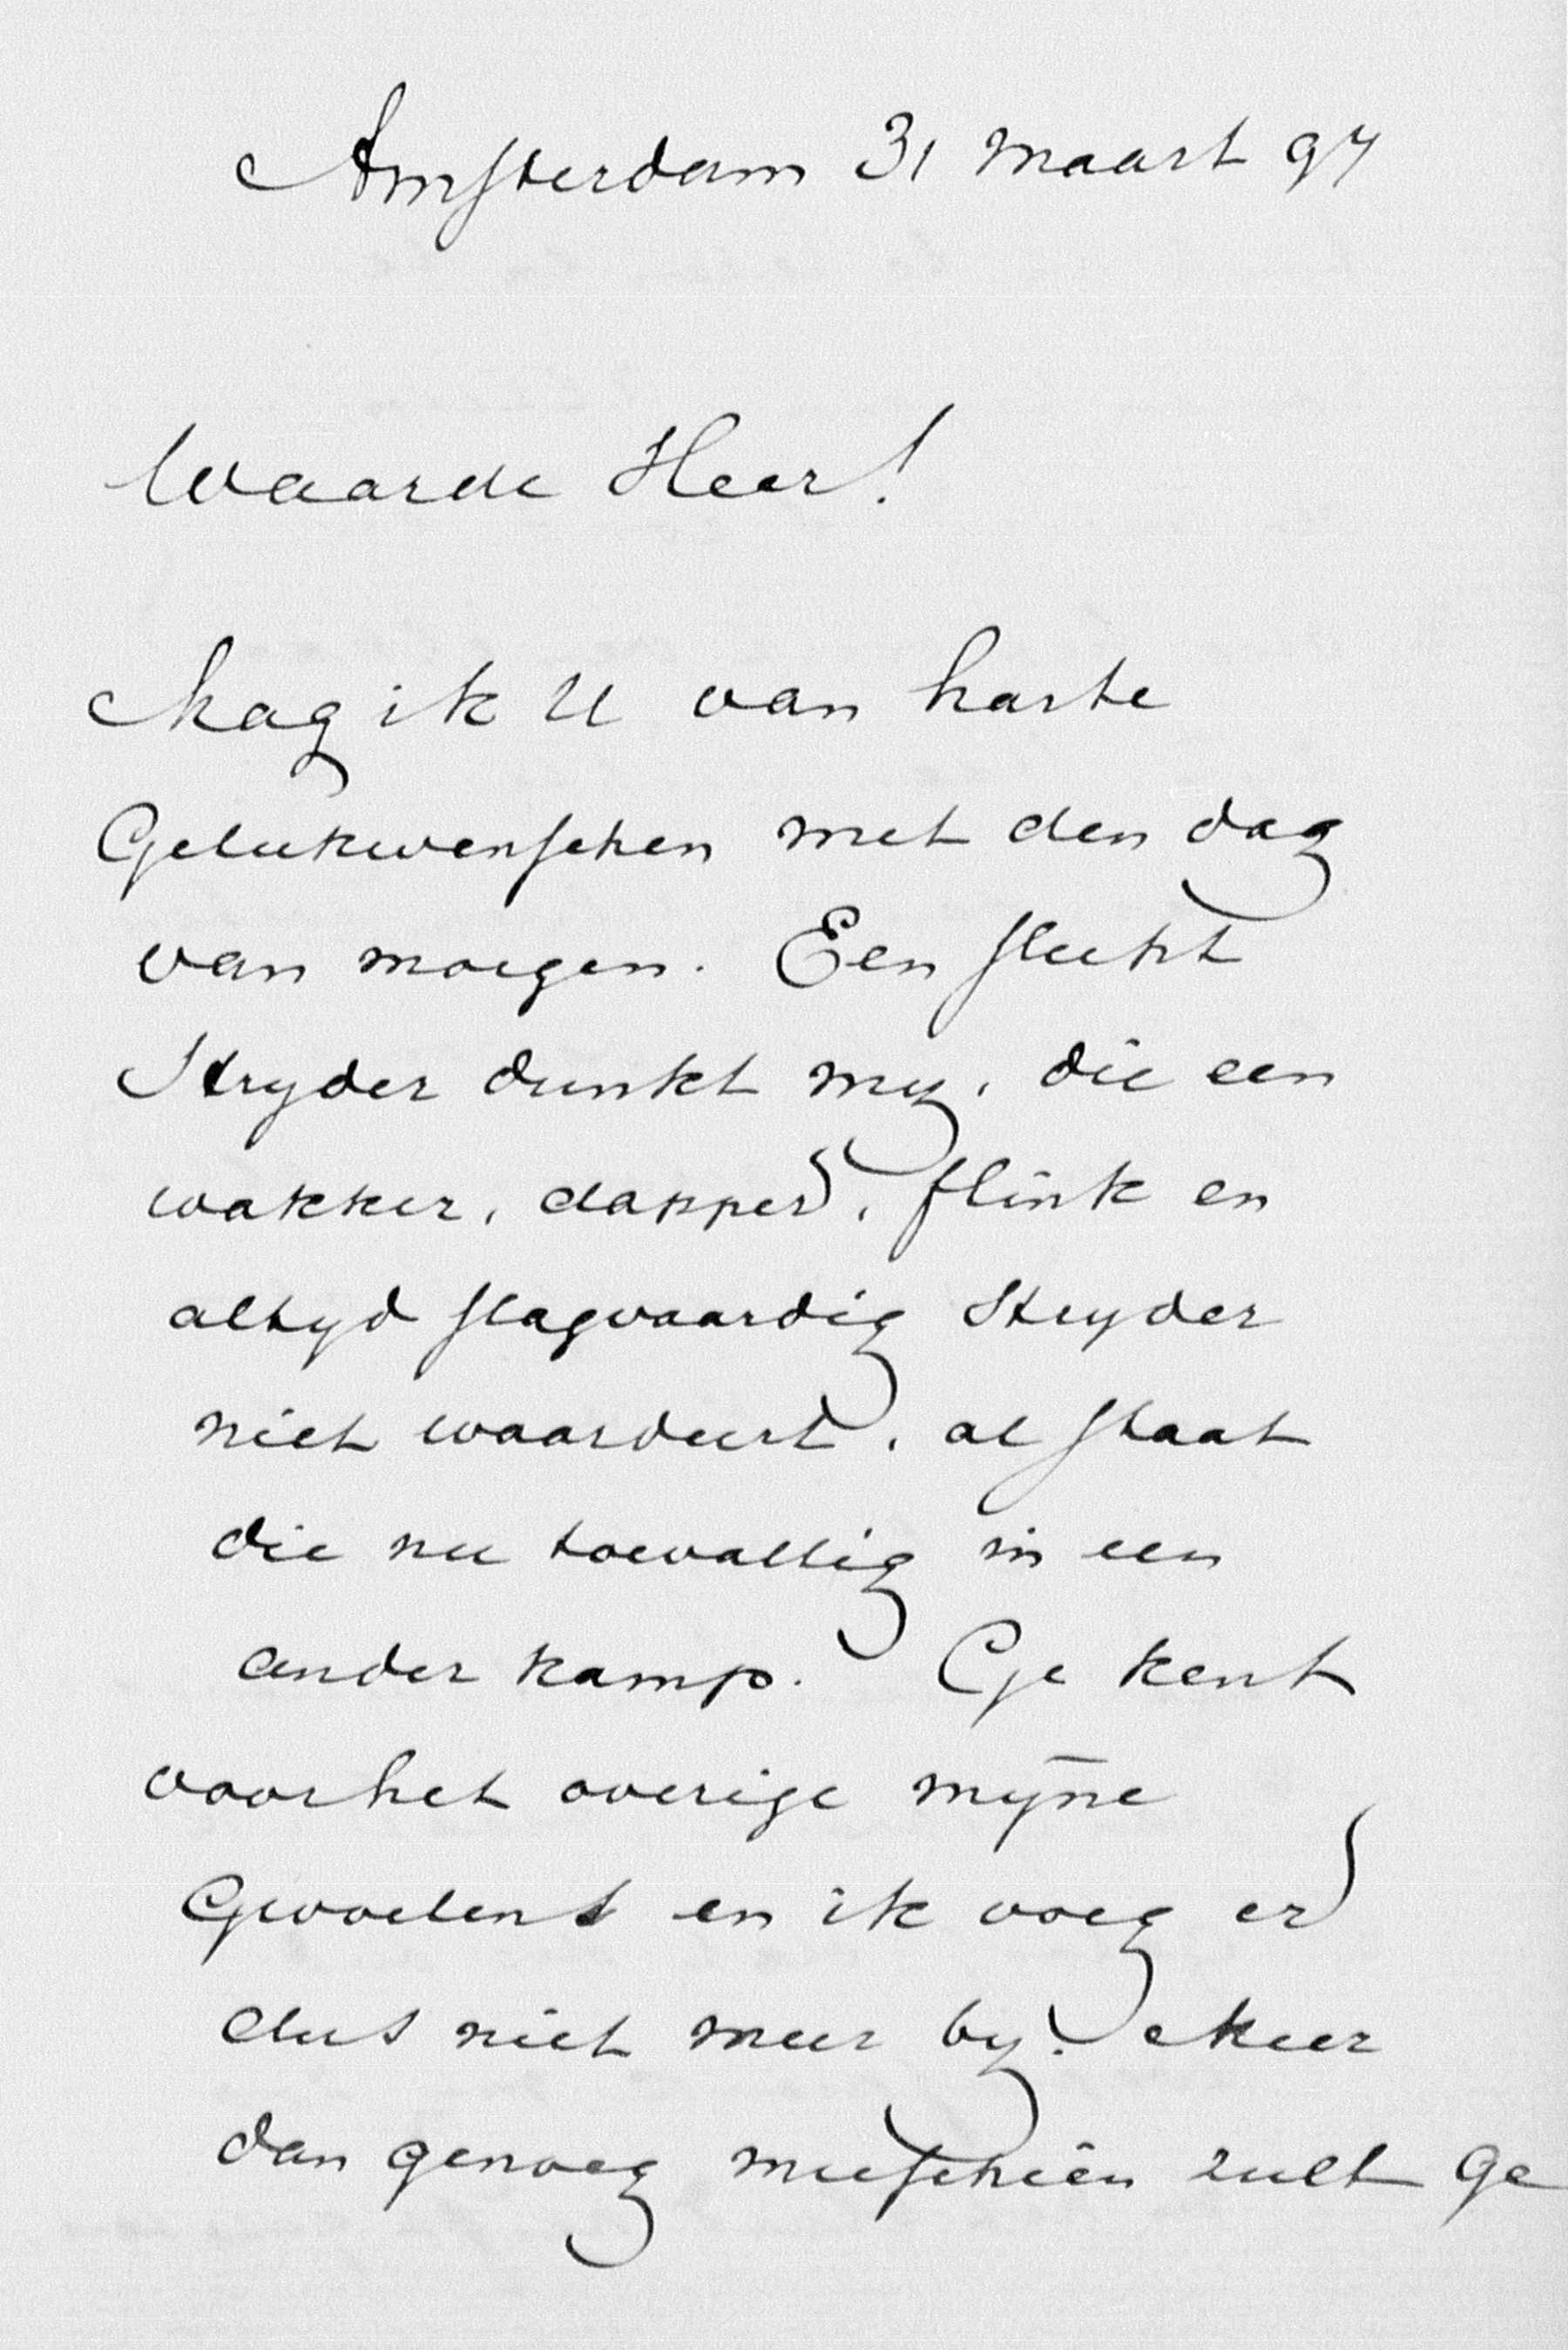 Amsterdam 31 Maart 97
Waarde Heer!
Mag ik U van harte
Gelukwenschen met den dag
van morgen. Een slecht
Stryder dunkt my, die een
wakker, dapper, flink en
altyd slagvaardig Stryder
niet waardeert, al staat
die nu toevallig in een
ander kamp. Ge kent
voor het overige myne
Gevoelens en ik voeg er
dus niet meer by. Meer
dan genoeg misschien zult ge